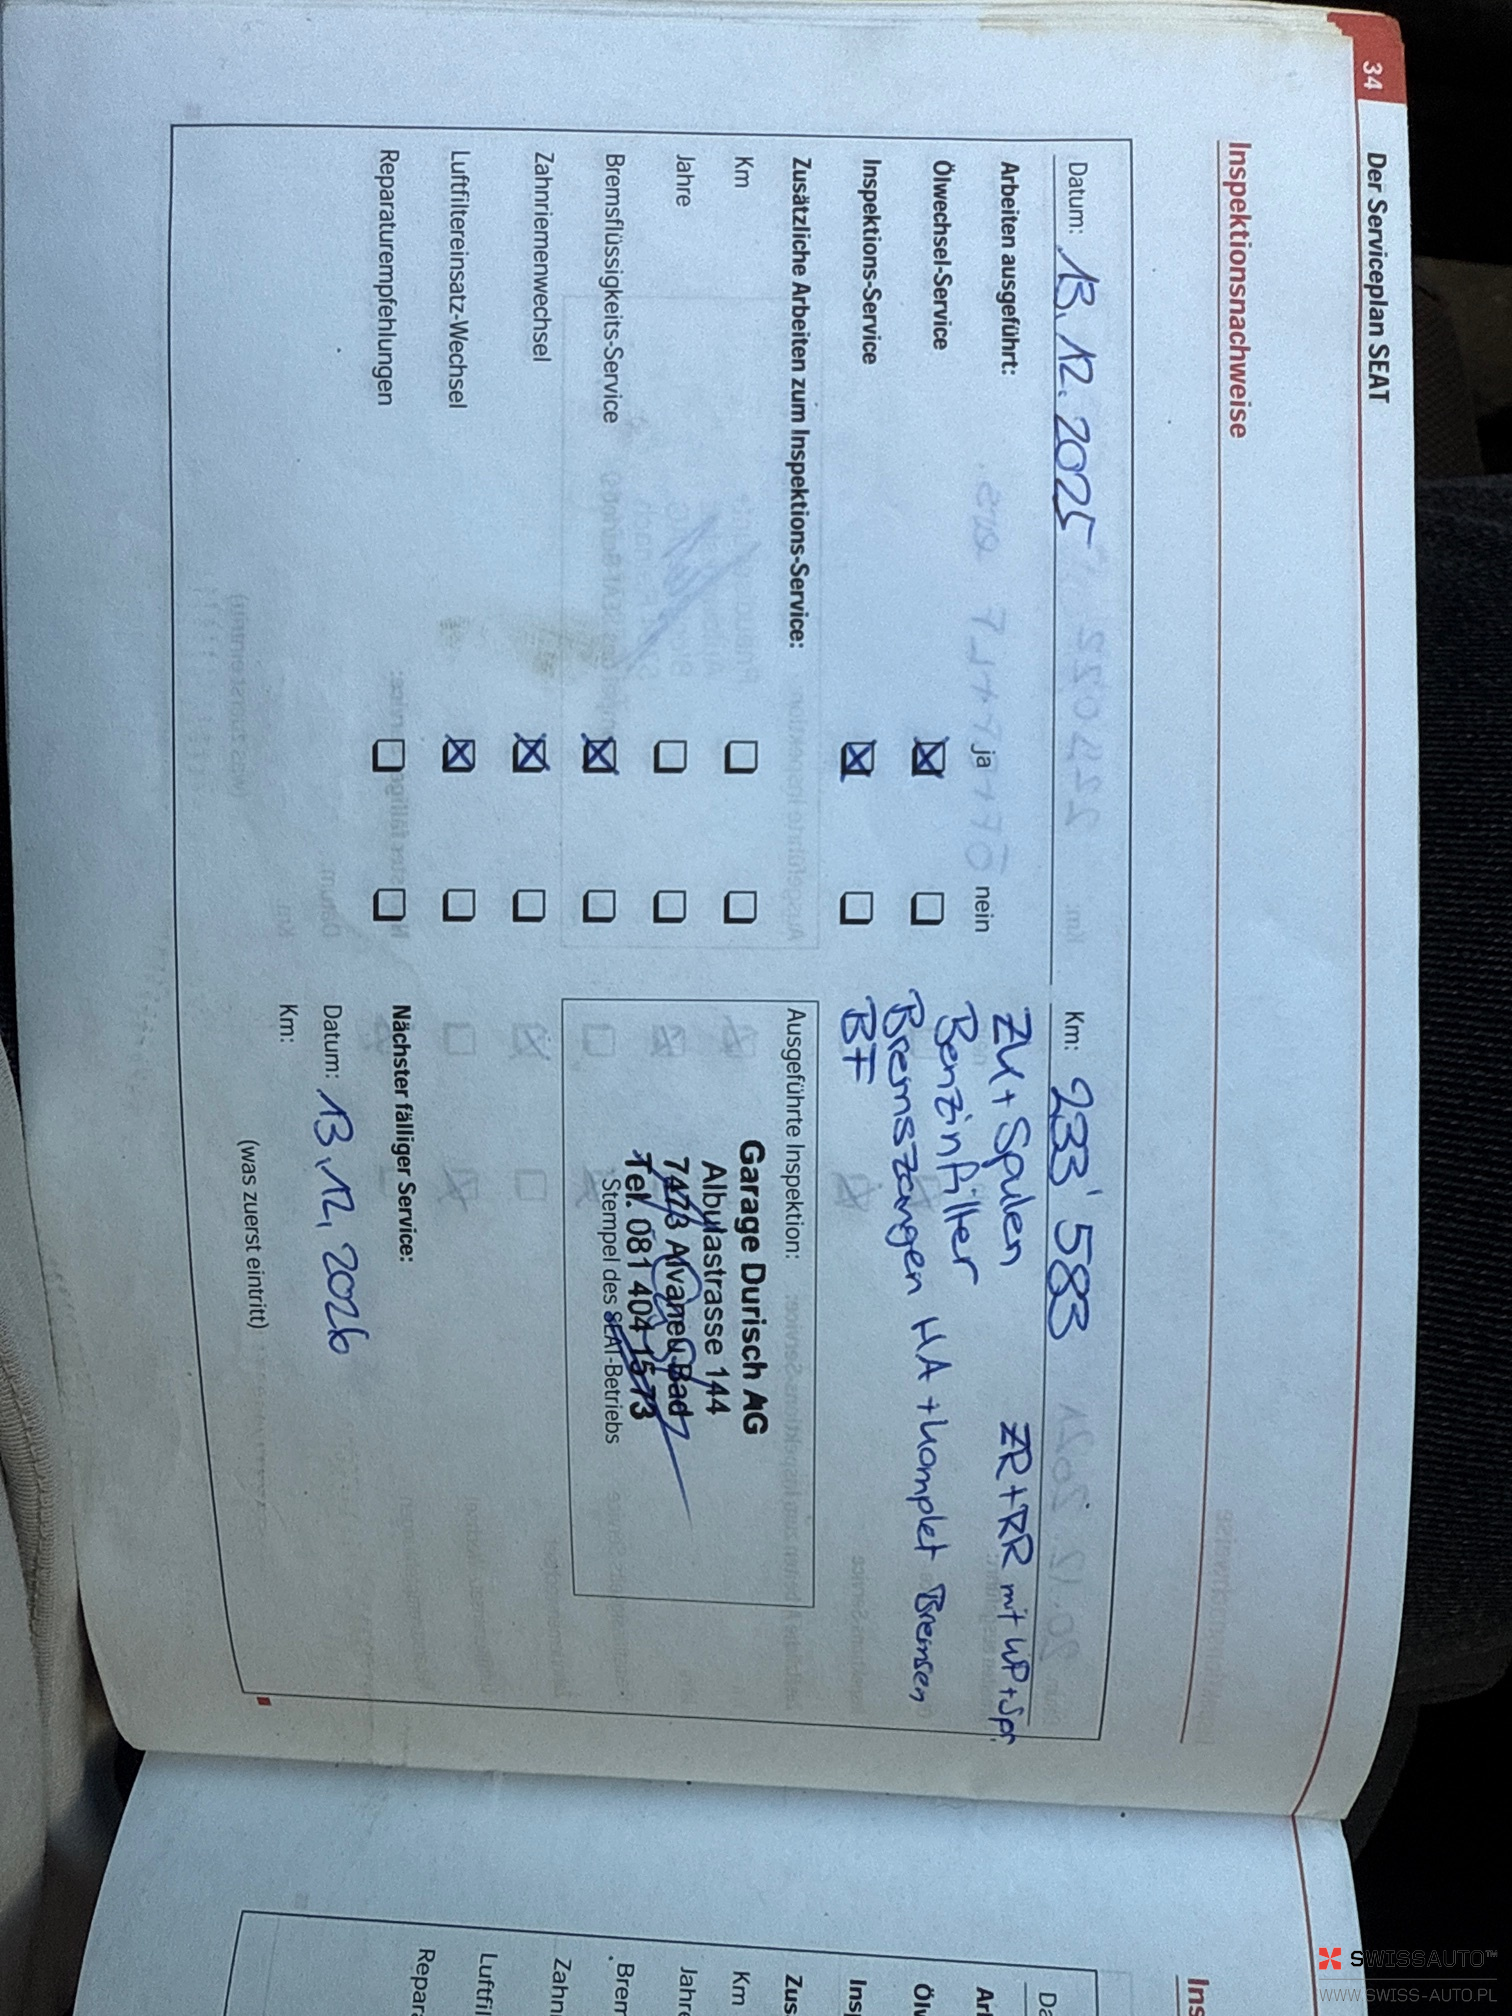 34
Der Serviceplan SEAT
Inspektionsnachweise
Datum: 13.12.2025 Km: 233'583
Arbeiten ausgeführt: ja nein
ZK + Spulen ZR + RR mit WP + Spr.
Ölwechsel-Service
Benzinfilter
Bremszangen HA + komplet Bremsen
Inspektions-Service
BF
Zusätzliche Arbeiten zum Inspektions-Service:
Ausgeführte Inspektion:
Km
Jahre
Bremsflüssigkeits-Service
Zahnriemenwechsel
Luftfiltereinsatz-Wechsel
Reparaturempfehlungen
Garage Durisch AG
Albulastrasse 144
7473 Alvaneu-Bad
Tel. 081 404 15 73
Stempel des SEAT-Betriebs
Nächster fälliger Service:
Datum: 13.12.2026
Km:
(was zuerst eintritt)
Ins
Da
Arl
Öl
Insp
Zus
Km
Jahre
Brem
Zahni
Luftfil
Repara
SWISSAUTO™
WWW.SWISS-AUTO.PL